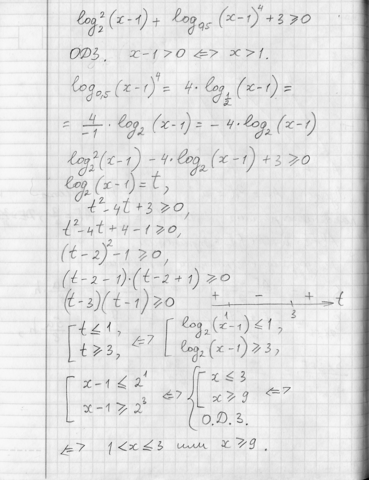 log₂²(x-1) + log₀,₅(x-1)⁴ + 3 ≥ 0
ОДЗ. x-1>0 <=> x>1.
log₀,₅(x-1)⁴ = 4·log_{1/2}(x-1) =
= 4/-1 · log₂(x-1) = -4·log₂(x-1)
log₂²(x-1) - 4·log₂(x-1) + 3 ≥ 0
log₂(x-1) = t,
t² - 4t + 3 ≥ 0,
t² - 4t + 4 - 1 ≥ 0,
(t-2)² - 1 ≥ 0,
(t-2-1)·(t-2+1) ≥ 0
(t-3)(t-1) ≥ 0 + - + t
1 3
[ t ≤ 1, <=> [ log₂(x-1) ≤ 1,
t ≥ 3, log₂(x-1) ≥ 3,
[ x-1 ≤ 2¹ <=> { [ x ≤ 3 <=>
x-1 ≥ 2³ x ≥ 9
О.Д.З.
<=> 1 < x ≤ 3 или x ≥ 9.